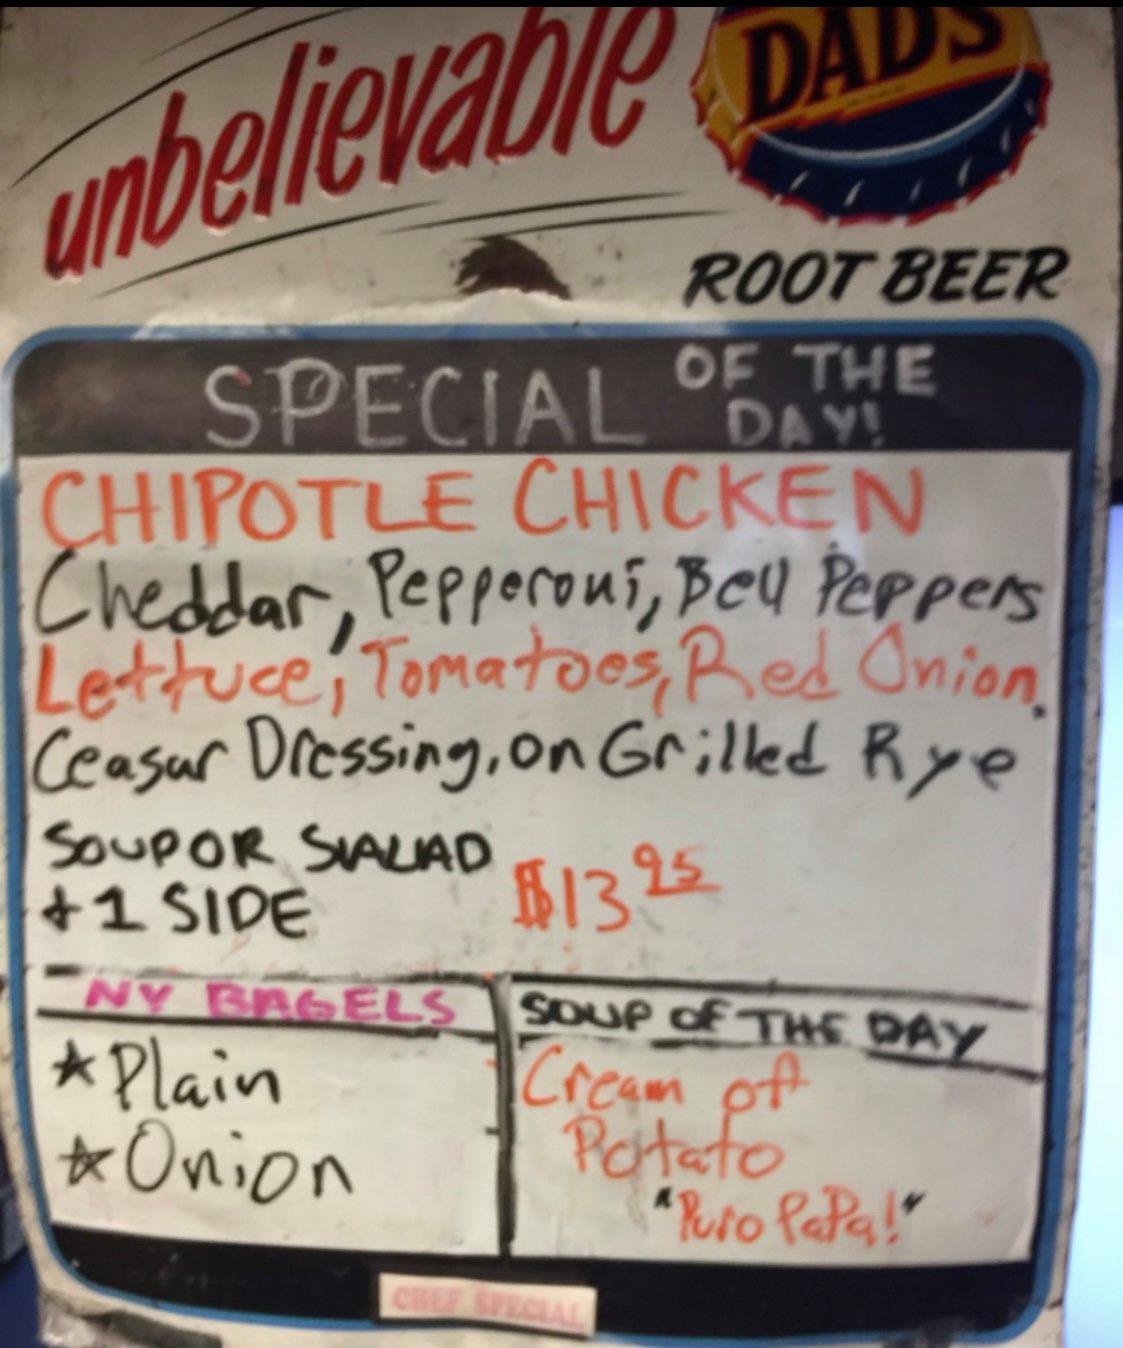 unbelievable
DAD'S
ROOT BEER
SPECIAL OF THE DAY!
CHIPOTLE CHICKEN
Cheddar, Pepperoni, Bell Peppers
Lettuce, Tomatoes, Red Onion.
Ceasar Dressing, on Grilled Rye
SOUP OR SALAD
+ 1 SIDE
$13 95
NY BAGELS
★ Plain
★ Onion
SOUP OF THE DAY
Cream of
Potato
"Puro PaPa!"
CHEF SPECIAL